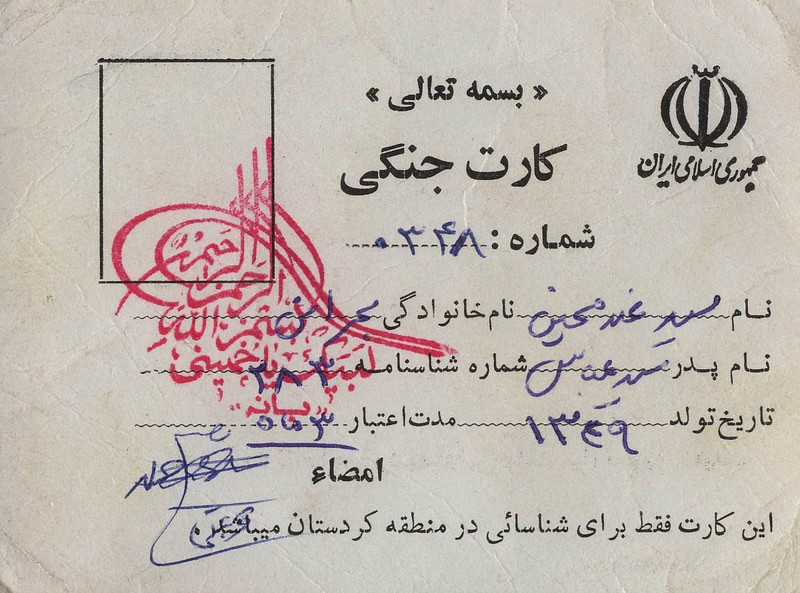 « بسمه تعالی »
جمهوری اسلامی ایران
کارت جنگی
شماره : ۰۳۴۸
نام سید نام خانوادگی
نام پدر سید عباس شماره شناسنامه ۳۸۳
تاریخ تولد ۱۳۴۹ مدت اعتبار
امضاء
این کارت فقط برای شناسائی در منطقه کردستان میباشد .
بسم الله الرحمن الرحیم
لبیک یا خمینی
بانه